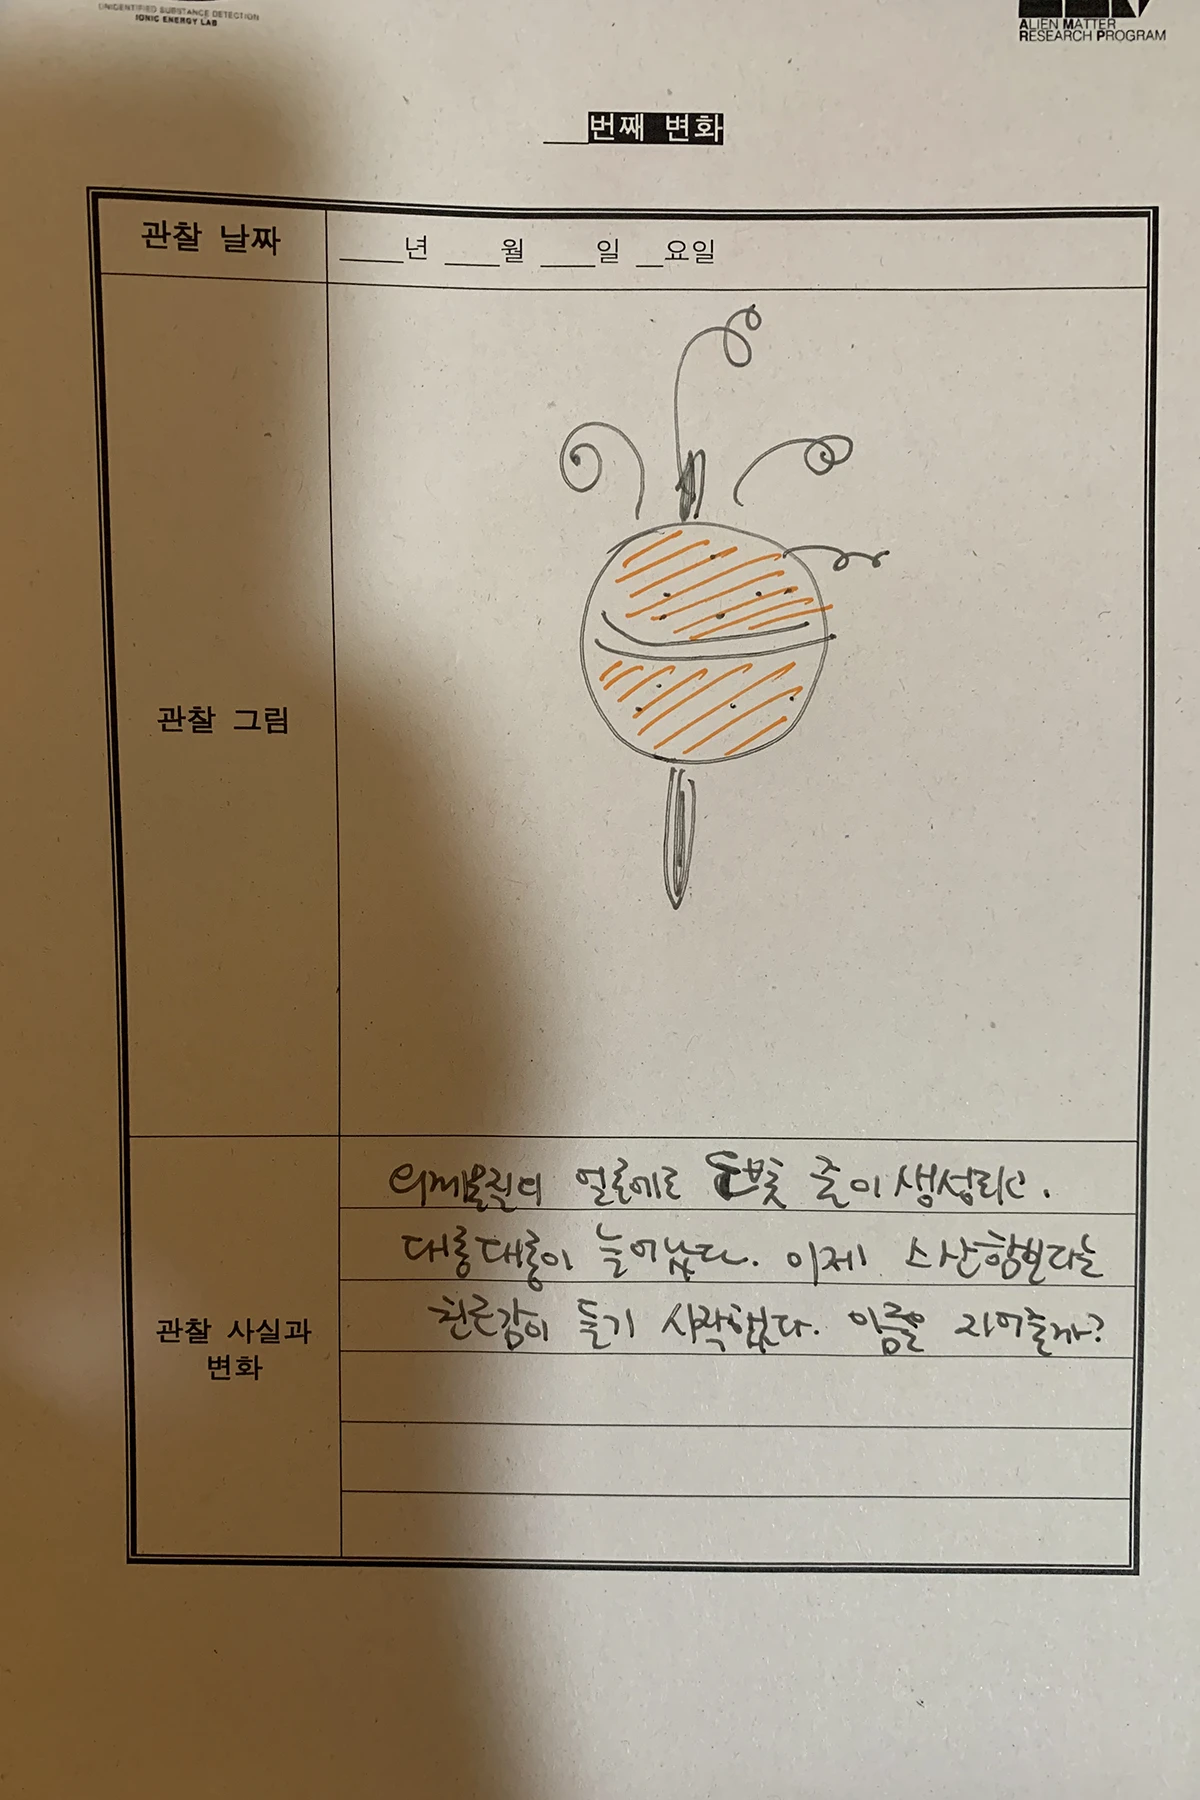 UNIDENTIFIED SUBSTANCE DETECTION
IONIC ENERGY LAB
ALIEN MATTER
RESEARCH PROGRAM
___번째 변화
관찰 날짜
____년 ____월 ____일 __요일
관찰 그림
외계물질의 얼룩에로 줄이 생성되고.
대롱대롱이 늘어났다. 이제 스산함보다는
친근감이 들기 시작했다. 이름을 지어줄까?
관찰 사실과
변화